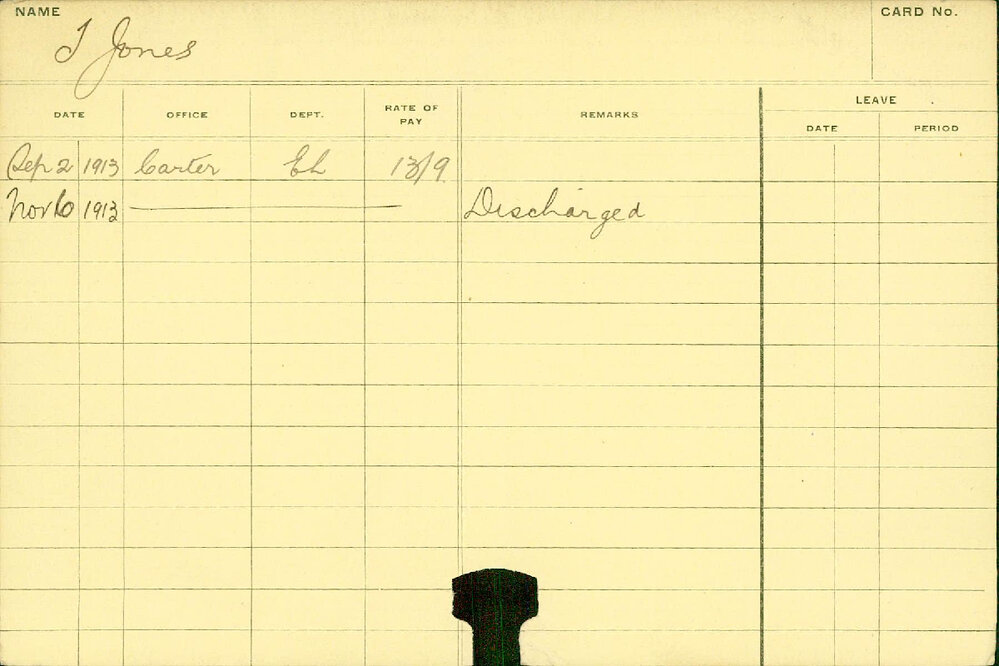 NAME CARD No.
J Jones
DATE OFFICE DEPT. RATE OF PAY REMARKS LEAVE
DATE PERIOD
Sep 2 1913 Carter EL 13/9
Nov 6 1913 Discharged